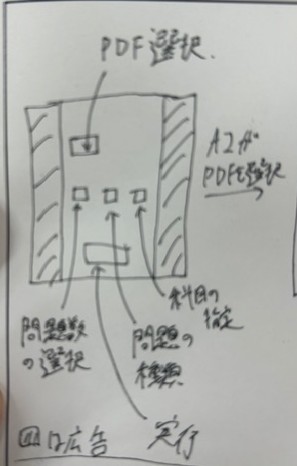 PDF選択.
AIが
PDFを選択
問題数
の選択
問題の
種類
科目の
指定
実行
は広告